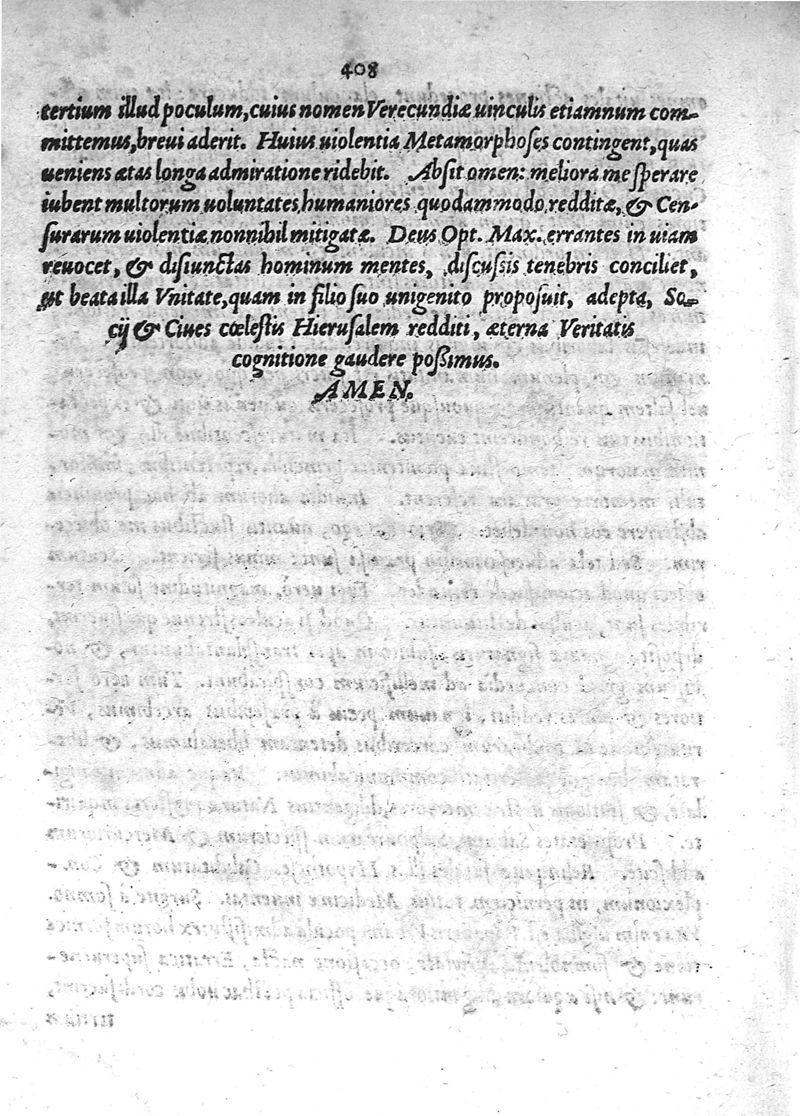 408
tertium illud poculum, cuius nomen Verecundiæ uinculis etiamnum com-
mittemus, breui aderit. Huius uiolentia Metamorphoses contingent, quas
ueniens ætas longa admiratione ridebit. Absit omen: meliora me sperare
iubent multorum uoluntates, humaniores quodammodo redditæ, & Cen-
surarum uiolentiæ nonnihil mitigatæ. Deus Opt. Max. errantes in uiam
reuocet, & disiunctas hominum mentes, discussis tenebris conciliet,
ut beata illa Vnitate, quam in filio suo unigenito proposuit, adepta, So-
cij & Ciues cœlestis Hierusalem redditi, æterna Veritatis
cognitione gaudere possimus.
AMEN.